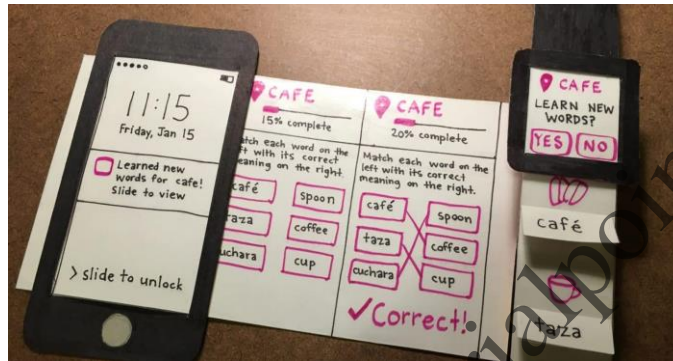 11:15
Friday, Jan 15
Learned new
words for cafe!
Slide to view
> slide to unlock
CAFE
15% complete
each word on the
left with its correct
meaning on the right.
café
spoon
taza
coffee
cuchara
cup
CAFE
20% complete
Match each word on the
left with its correct
meaning on the right.
café
spoon
taza
coffee
cuchara
cup
✓Correct!
CAFE
LEARN NEW
WORDS?
YES
NO
café
taza